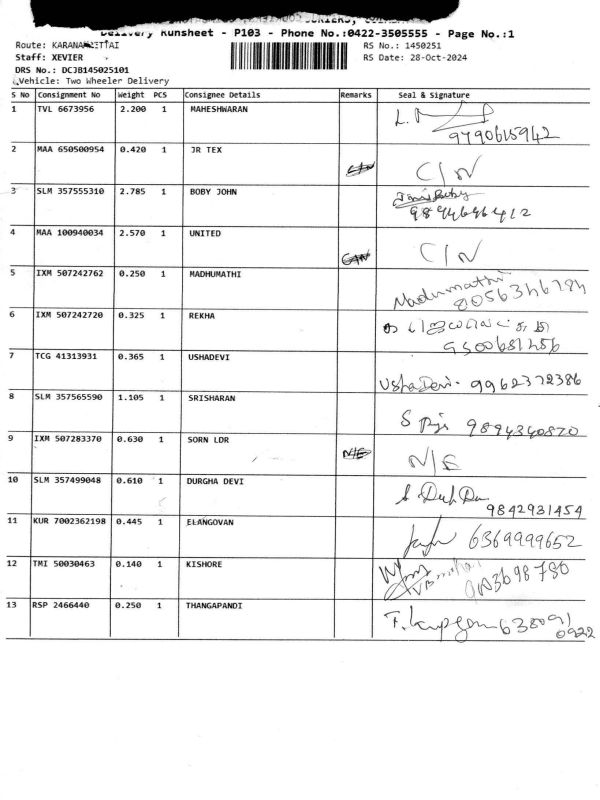 Delivery Runsheet - P103 - Phone No.:0422-3505555 - Page No.:1
Route: KARANAMPETTAI
RS No.: 1450251
Staff: XEVIER
RS Date: 28-Oct-2024
DRS No.: DCJB145025101
Vehicle: Two Wheeler Delivery
S No Consignment No Weight PCS Consignee Details Remarks Seal & Signature
1 TVL 6673956 2.200 1 MAHESHWARAN
9790615942
2 MAA 650500954 0.420 1 JR TEX C/N
3 SLM 357555310 2.785 1 BOBY JOHN
9894646412
4 MAA 100940034 2.570 1 UNITED C/N
5 IXM 507242762 0.250 1 MADHUMATHI Madhumathi
8056346784
6 IXM 507242720 0.325 1 REKHA
9500681456
7 TCG 41313931 0.365 1 USHADEVI Usha Devi. 9962372386
8 SLM 357565590 1.105 1 SRISHARAN 9894340870
9 IXM 507283370 0.630 1 SORN LDR N/E
10 SLM 357499048 0.610 1 DURGHA DEVI
9842931454
11 KUR 7002362198 0.445 1 ELANGOVAN 6369999652
12 TMI 50030463 0.140 1 KISHORE
13 RSP 2466440 0.250 1 THANGAPANDI 638091
0922